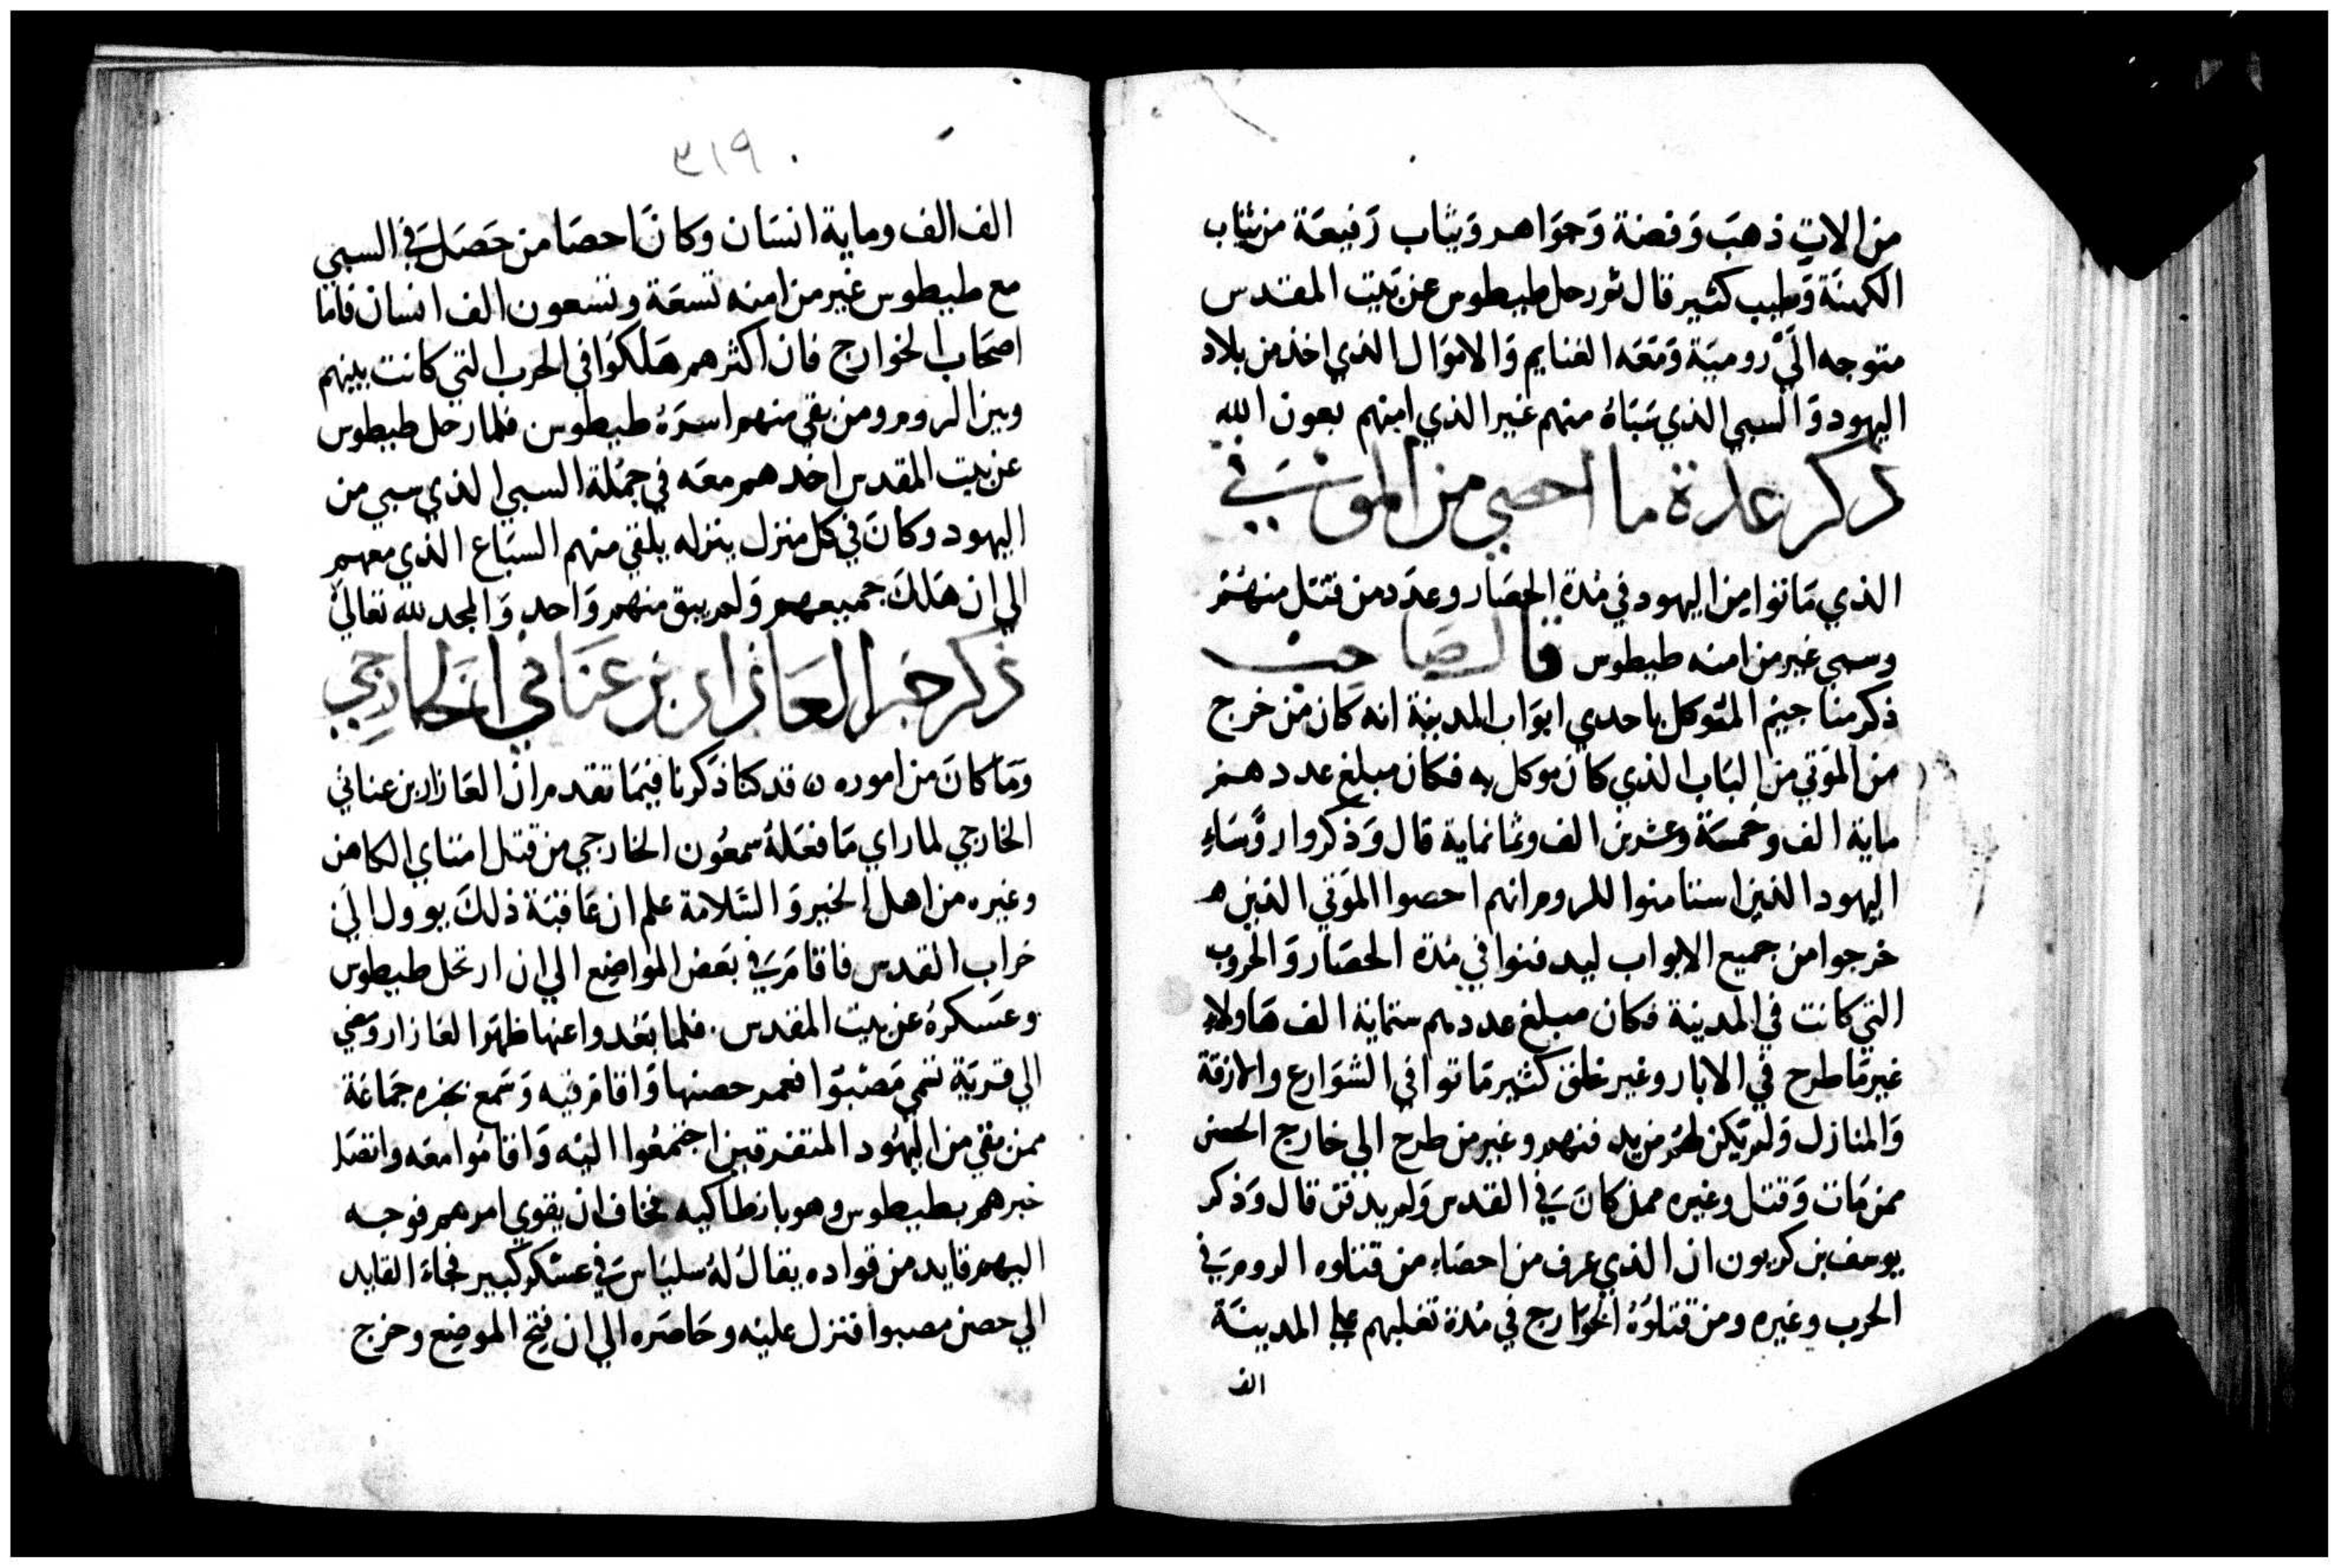 من الات ذهب وفضة وجواهر وثياب رفيعة من ثياب
الكهنة وطيب كثير قال ثم رحل طيطوس عن بيت المقدس
متوجه الي رومية ومعه الغنايم والاموال الذي اخذ من بلاد
اليهود والسبي الذي سباه منهم غير الذي امنهم بعون الله
ذكر عدة ما احصي من الموتي
الذي ماتوا من اليهود في مدة الحصار وعدد من قتل منهم
وسبي غير من امنه طيطوس قال صاحب
ذكر مناحيم المتوكل باحدي ابواب المدينة انه كان من خرج
من الموتي من الباب الذي كان موكل به فكان مبلغ عددهم
ماية الف وخمسة وعشرين الف وثمانماية قال وذكروا روساء
اليهود الذين استامنوا للروم انهم احصوا الموتي الذين
خرجوا من جميع الابواب ليدفنوا في مدة الحصار والحروب
التي كانت في المدينة فكان مبلغ عددهم ستماية الف هاولاء
غير ما طرح في الابار وغير خلق كثير ماتوا في الشوارع والازقة
والمنازل ولم يكن لهم من يدفنهم وغير من طرح الي خارج الحصن
ممن مات وقتل وغيره ممن كان في القدس ولم يدفن قال وذكر
يوسف بن كربون ان الذي عرف من احصاء من قتلوه الروم في
الحرب وغيره ومن قتلوه الخوارج في مدة تغلبهم علي المدينة
الف
٣١٩
الف الف وماية انسان وكان احصا من حصل في السبي
مع طيطوس غير من امنه تسعة وتسعون الف انسان فاما
اصحاب الخوارج فان اكثرهم هلكوا في الحرب التي كانت بينهم
وبين الروم ومن بقي منهم اسره طيطوس فلما رحل طيطوس
عن بيت المقدس اخدهم معه في جملة السبي الذي سبي من
اليهود وكان في كل منزل ينزله يلقي منهم السباع الذي معهم
الي ان هلك جميعهم ولم يبق منهم واحد والمجد لله تعالي
ذكر خبر العازار بن عناني الخارجي
وما كان من اموره ن قد كنا ذكرنا فيما تقدم ان العازار بن عناني
الخارجي لما راي ما فعله سمعون الخارجي من قتل امتاي الكاهن
وغيره من اهل الخير والسلامة علم ان عاقبة ذلك يوول الي
خراب القدس فاقام في بعض المواضع الي ان ارتحل طيطوس
وعسكره عن بيت المقدس. فلما بعدوا عنها ظهر العازار ومضي
الي قرية تسمي مصبوا فعمر حصنها واقام فيه وسمع بخبره جماعة
ممن بقي من اليهود المتفرقين اجتمعوا اليه واقاموا معه واتصل
خبرهم بطيطوس وهو بانطاكيه فخاف ان يقوي امرهم فوجه
اليهم قايد من قواده يقال له سلياس في عسكر كبير فجاء القايد
الي حصن مصبوا فنزل عليه وحاصره الي ان فتح الموضع وخرج